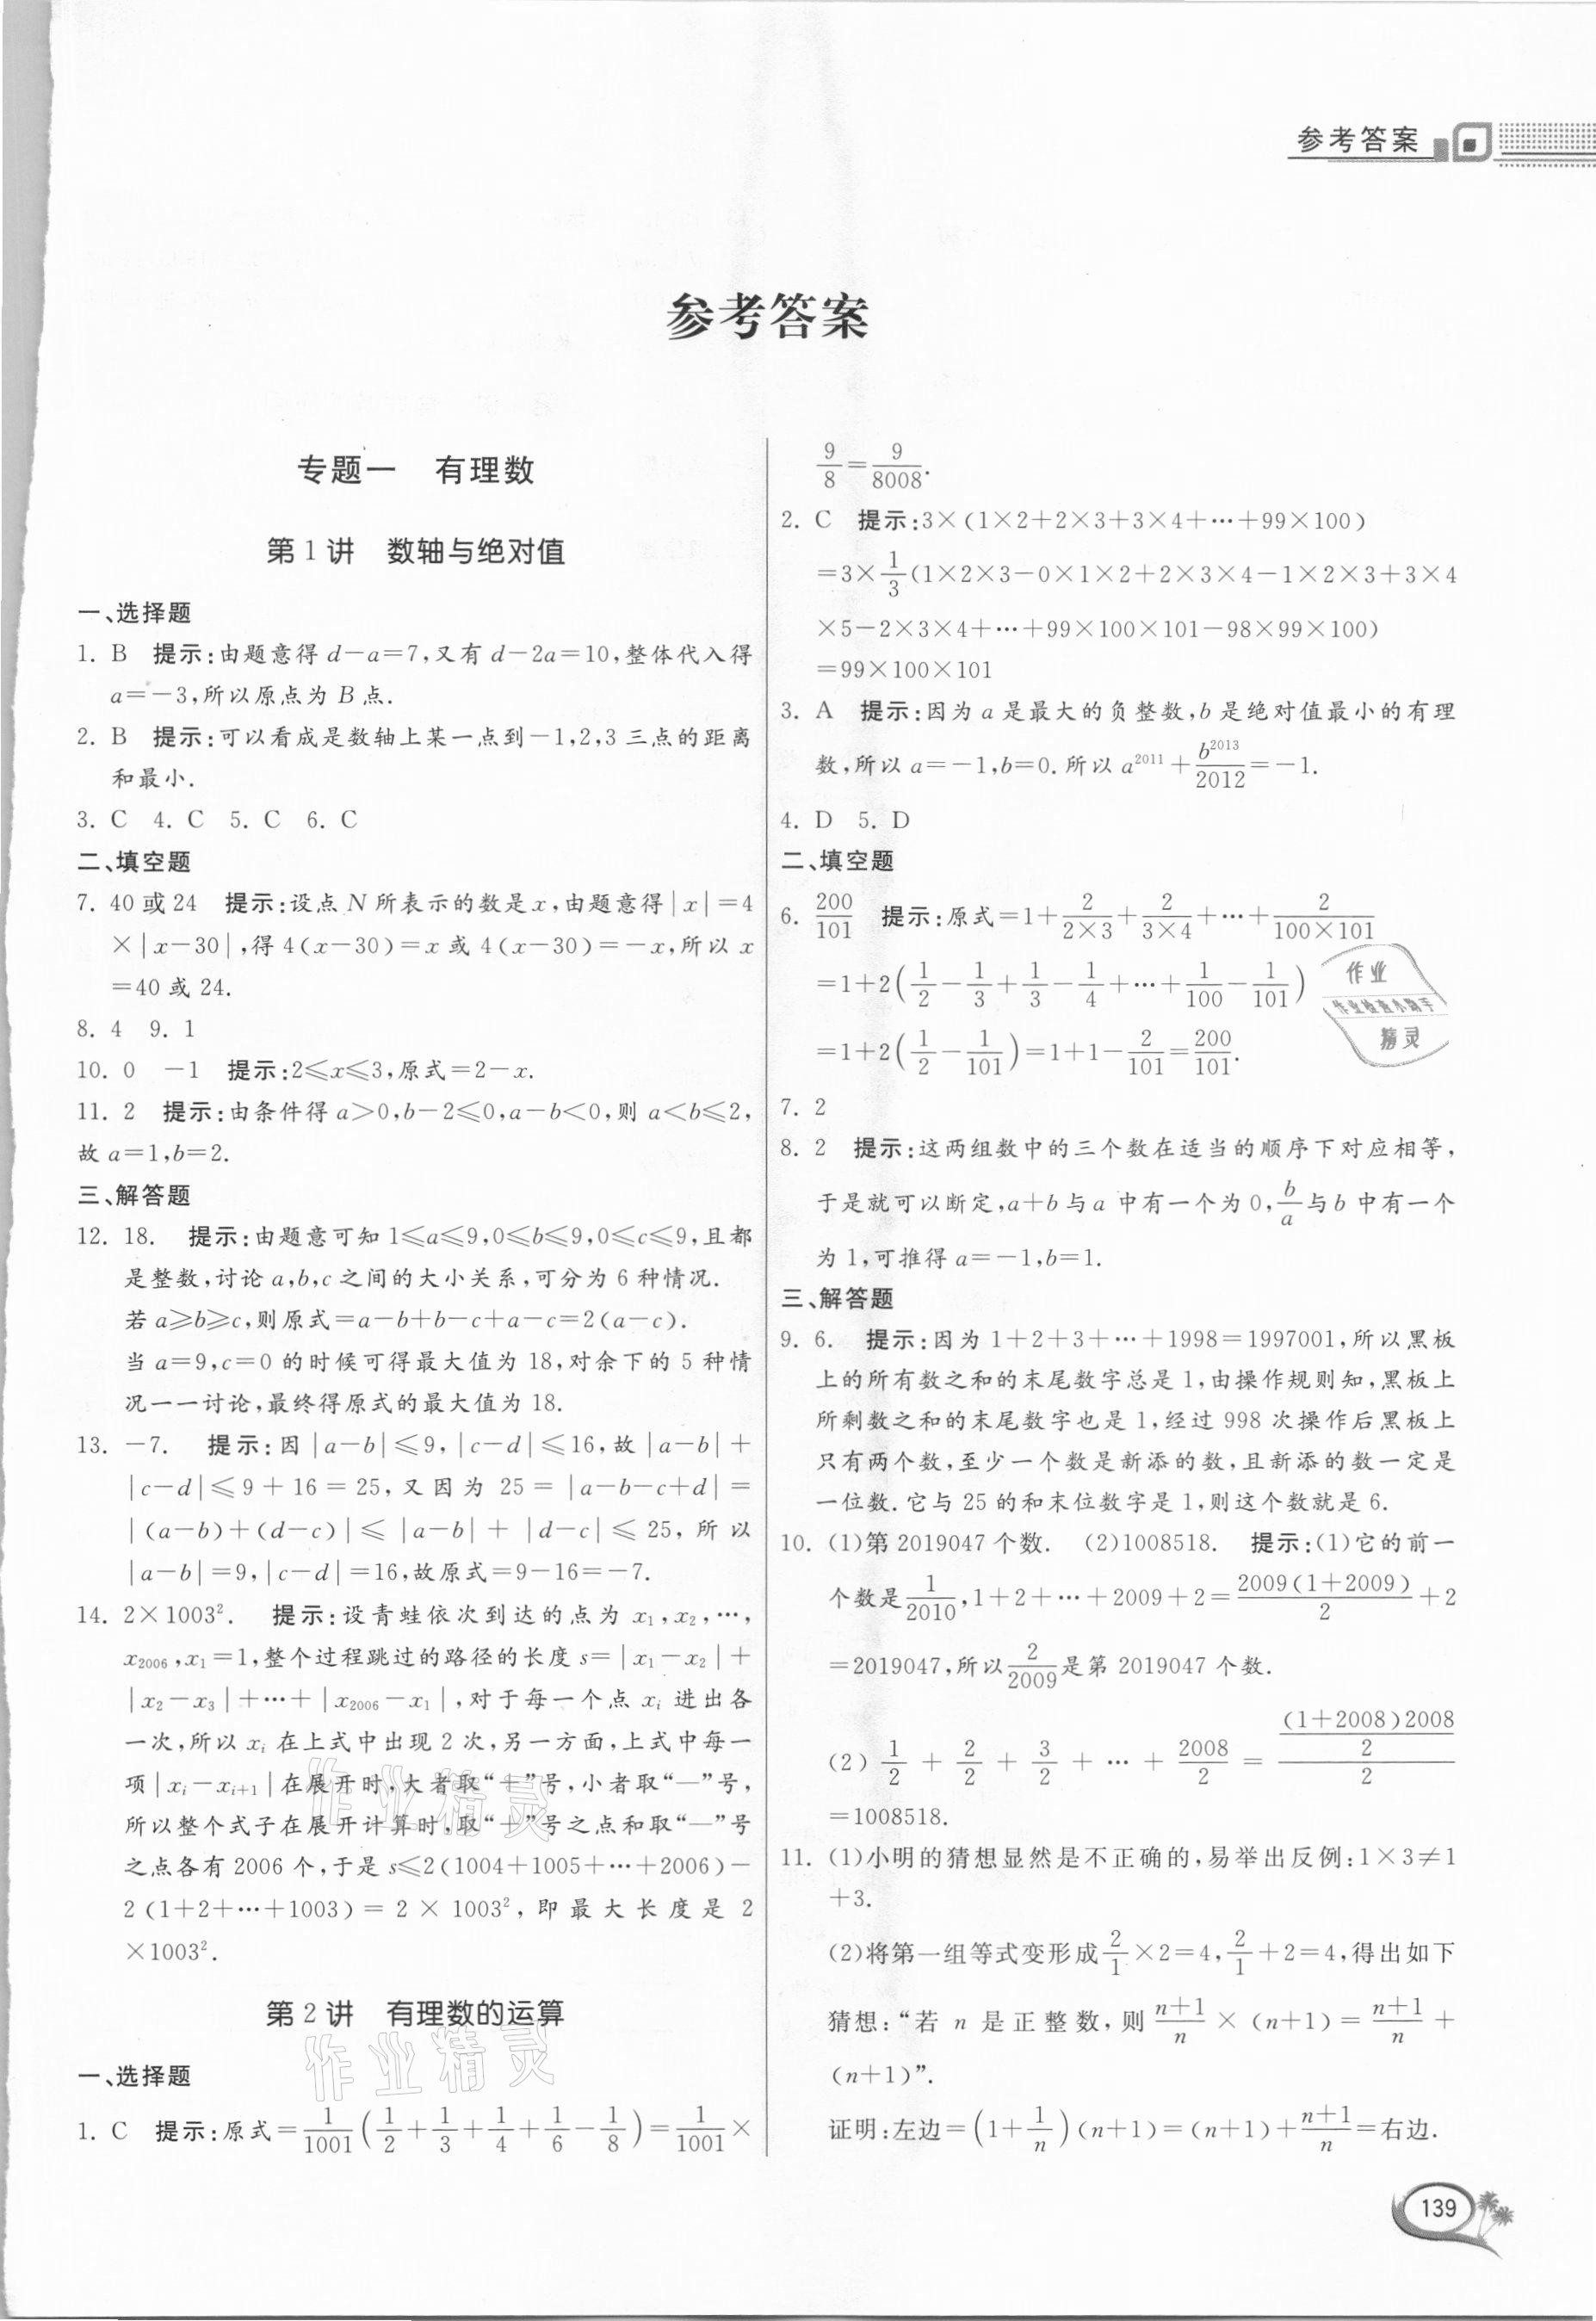 参考答案
参考答案
专题一 有理数
第1讲 数轴与绝对值
一、选择题
1. B 提示:由题意得 d－a＝7,又有 d－2a＝10,整体代入得
a＝－3,所以原点为 B 点.
2. B 提示:可以看成是数轴上某一点到－1,2,3 三点的距离
和最小.
3. C 4. C 5. C 6. C
二、填空题
7. 40 或 24 提示:设点 N 所表示的数是 x,由题意得|x|＝4
×|x－30|,得 4(x－30)＝x 或 4(x－30)＝－x,所以 x
＝40 或 24.
8. 4 9. 1
10. 0 －1 提示:2≤x≤3,原式＝2－x.
11. 2 提示:由条件得 a＞0,b－2≤0,a－b＜0,则 a＜b≤2,
故 a＝1,b＝2.
三、解答题
12. 18. 提示:由题意可知 1≤a≤9,0≤b≤9,0≤c≤9,且都
是整数,讨论 a,b,c 之间的大小关系,可分为 6 种情况.
若 a≥b≥c,则原式＝a－b＋b－c＋a－c＝2(a－c).
当 a＝9,c＝0 的时候可得最大值为 18,对余下的 5 种情
况一一讨论,最终得原式的最大值为 18.
13. －7. 提示:因|a－b|≤9,|c－d|≤16,故|a－b|＋
|c－d|≤9＋16＝25,又因为 25＝|a－b－c＋d|＝
|(a－b)＋(d－c)|≤|a－b|＋|d－c|≤25,所以
|a－b|＝9,|c－d|＝16,故原式＝9－16＝－7.
14. 2×1003². 提示:设青蛙依次到达的点为 x₁,x₂,…,
x₂₀₀₆,x₁＝1,整个过程跳过的路径的长度 s＝|x₁－x₂|＋
|x₂－x₃|＋…＋|x₂₀₀₆－x₁|,对于每一个点 xᵢ 进出各
一次,所以 xᵢ 在上式中出现 2 次,另一方面,上式中每一
项|xᵢ－xᵢ₊₁|在展开时,大者取“＋”号,小者取“—”号,
所以整个式子在展开计算时,取“＋”号之点和取“—”号
之点各有 2006 个,于是 s≤2(1004＋1005＋…＋2006)－
2(1＋2＋…＋1003)＝2×1003²,即最大长度是 2
×1003².
第2讲 有理数的运算
一、选择题
1. C 提示:原式＝1/1001(1/2＋1/3＋1/4＋1/6－1/8)＝1/1001×
9/8＝9/8008.
2. C 提示:3×(1×2＋2×3＋3×4＋…＋99×100)
＝3×1/3(1×2×3－0×1×2＋2×3×4－1×2×3＋3×4
×5－2×3×4＋…＋99×100×101－98×99×100)
＝99×100×101
3. A 提示:因为 a 是最大的负整数,b 是绝对值最小的有理
数,所以 a＝－1,b＝0.所以 a²⁰¹¹＋b²⁰¹³/2012＝－1.
4. D 5. D
二、填空题
6. 200/101 提示:原式＝1＋2/(2×3)＋2/(3×4)＋…＋2/(100×101)
＝1＋2(1/2－1/3＋1/3－1/4＋…＋1/100－1/101)
＝1＋2(1/2－1/101)＝1＋1－2/101＝200/101.
7. 2
8. 2 提示:这两组数中的三个数在适当的顺序下对应相等,
于是就可以断定,a＋b 与 a 中有一个为 0,b/a 与 b 中有一个
为 1,可推得 a＝－1,b＝1.
三、解答题
9. 6. 提示:因为 1＋2＋3＋…＋1998＝1997001,所以黑板
上的所有数之和的末尾数字总是 1,由操作规则知,黑板上
所剩数之和的末尾数字也是 1,经过 998 次操作后黑板上
只有两个数,至少一个数是新添的数,且新添的数一定是
一位数.它与 25 的和末位数字是 1,则这个数就是 6.
10. (1)第 2019047 个数. (2)1008518. 提示:(1)它的前一
个数是1/2010,1＋2＋…＋2009＋2＝2009(1＋2009)/2＋2
＝2019047,所以2/2009是第 2019047 个数.
(2) 1/2＋2/2＋3/2＋…＋2008/2＝((1＋2008)2008/2)/2
＝1008518.
11. (1)小明的猜想显然是不正确的,易举出反例:1×3≠1
＋3.
(2)将第一组等式变形成2/1×2＝4,2/1＋2＝4,得出如下
猜想:“若 n 是正整数,则(n＋1)/n×(n＋1)＝(n＋1)/n＋
(n＋1)”.
证明:左边＝(1＋1/n)(n＋1)＝(n＋1)＋(n＋1)/n＝右边.
作业
作业检查小助手
精灵
作业精灵
作业精灵
139